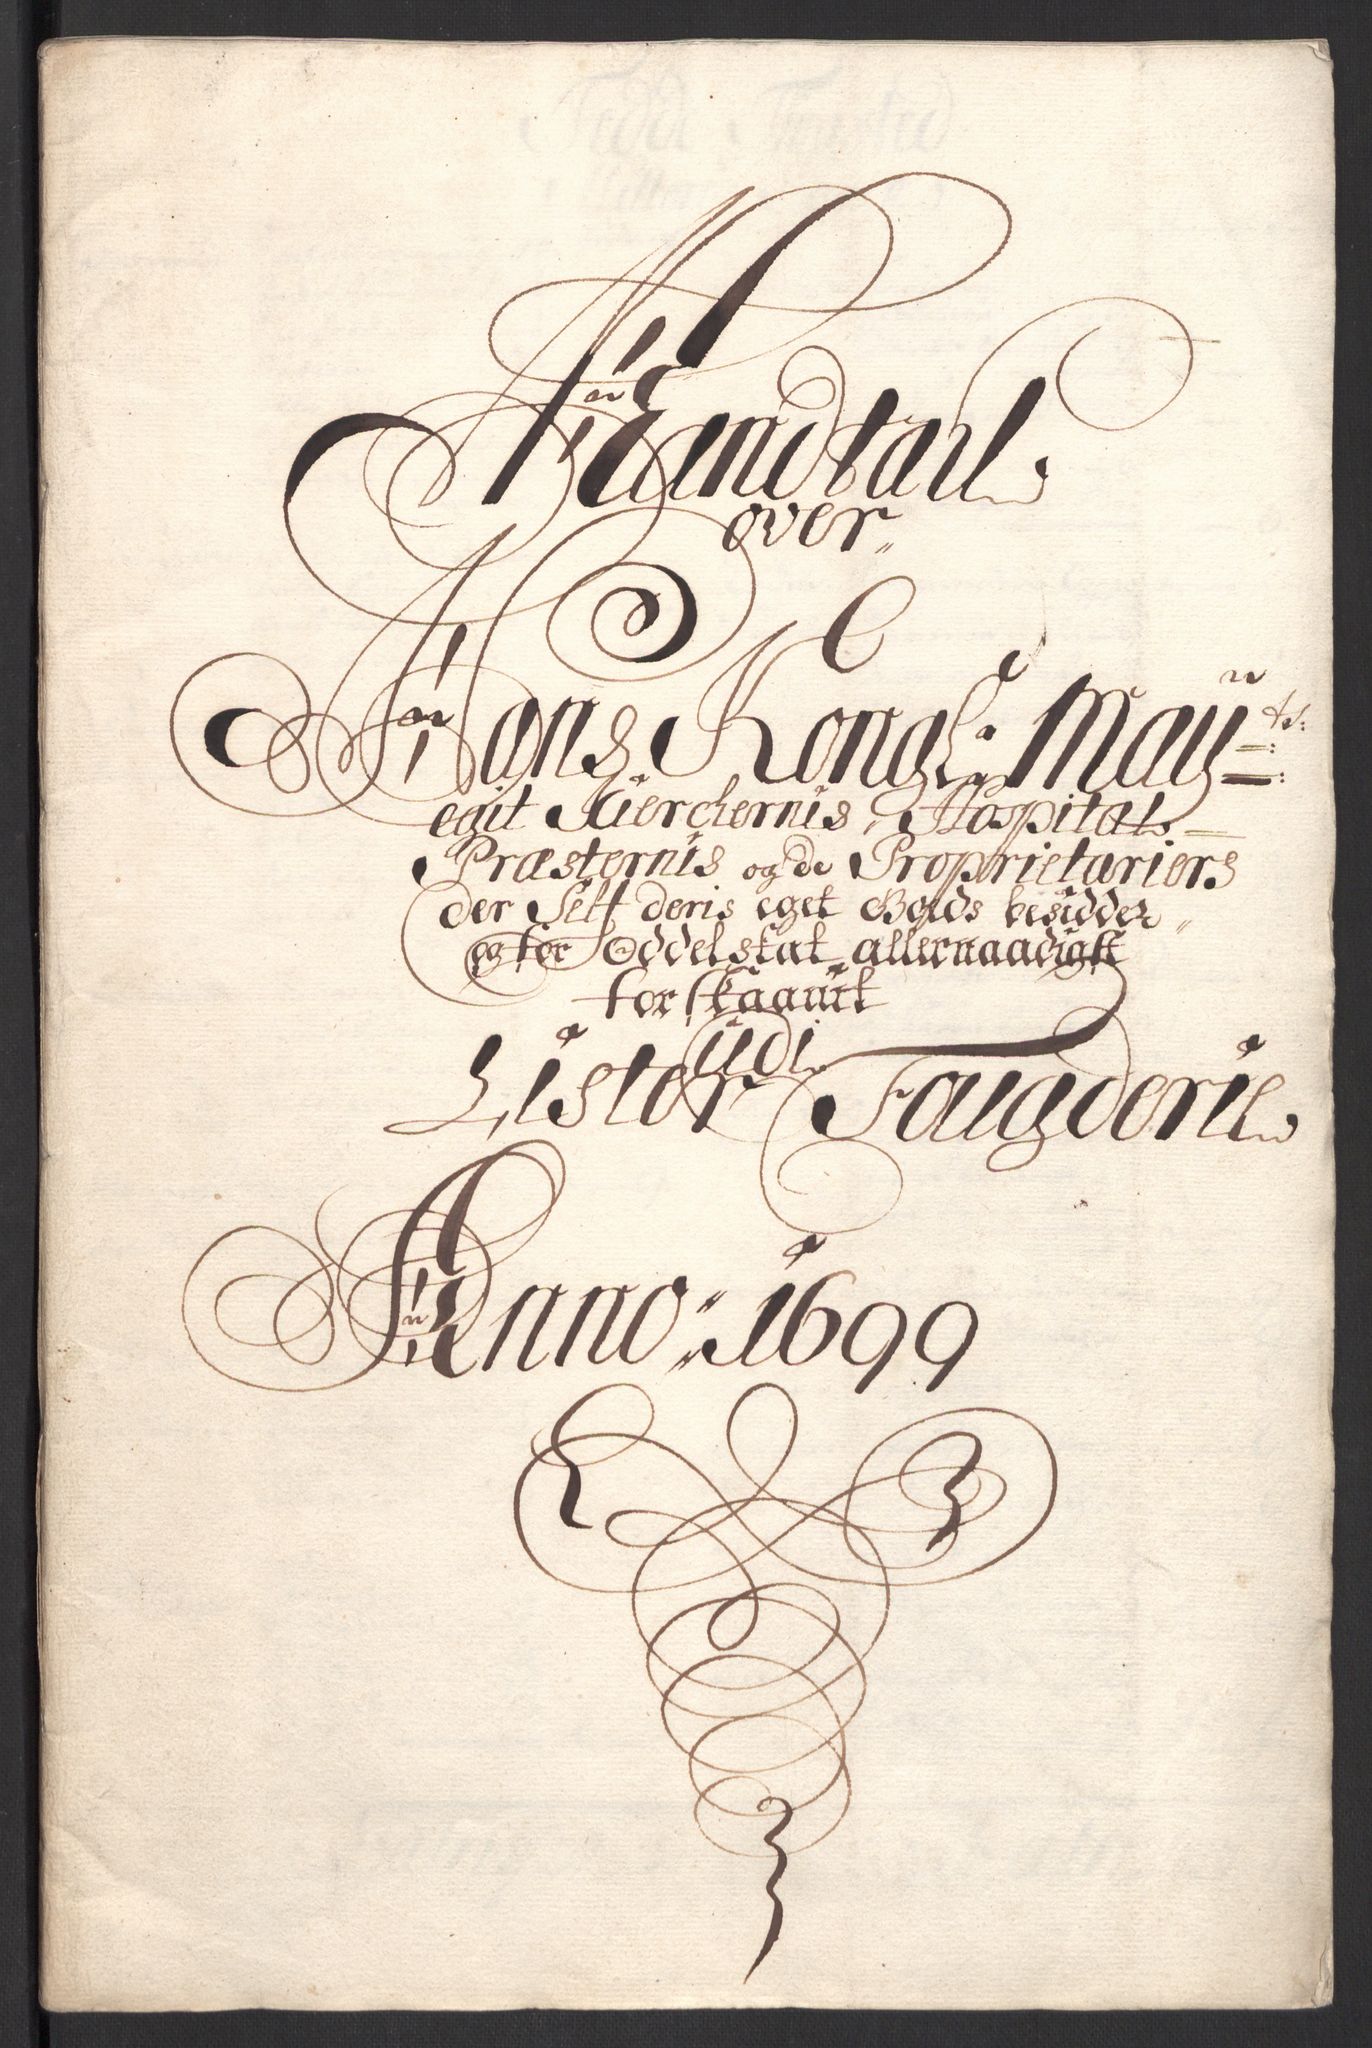 Mandtall
over
Hans Kongl: Maÿts:
egit Kierchernis, Hospitals
Præsternis og de Proprietariers
der Self deris eget Gods besidder
og for Oddelskat allernaadigst
forskaanit
udi
Lister Faugderie
Anno: 1699